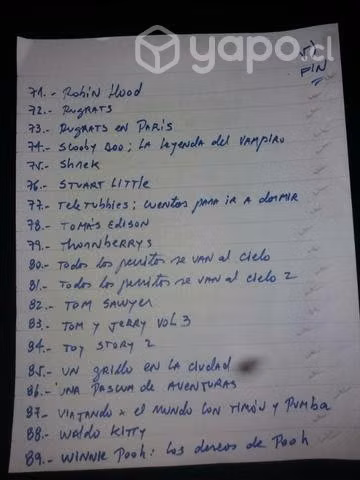 yapo.cl
FIN
71.- Robin Hood
72.- Rugrats
73.- Rugrats en Paris
74.- Scooby Doo; La leyenda del vampiro
75.- Shrek
76.- Stuart Little
77.- Teletubbies; cuentos para ir a dormir
78.- Tomás Edison
79.- Thornberrys
80.- Todos los perritos se van al cielo
81.- Todos los perritos se van al cielo 2
82.- Tom Sawyer
83.- Tom y Jerry Vol 3
84.- Toy Story 2
85.- Un grillo en la ciudad
86.- Una Pascua de aventuras
87.- Viajando x el mundo con Timón y Pumba
88.- Waldo Kitty
89.- Winnie Pooh: Los deseos de Pooh